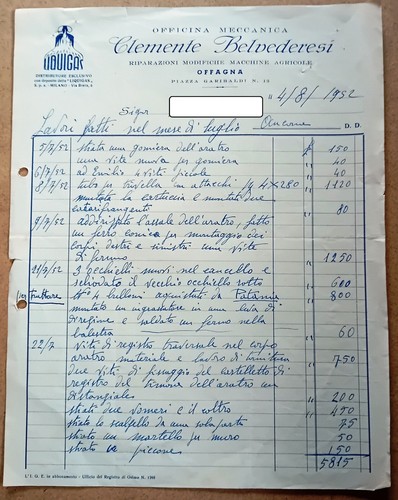 OFFICINA MECCANICA
Clemente Belvederesi
RIPARAZIONI MODIFICHE MACCHINE AGRICOLE
OFFAGNA
PIAZZA GARIBALDI N. 13
LIQUIGAS
DISTRIBUTORE ESCLUSIVO
con deposito della "LIQUIGAS„
S.p.a. - MILANO
Sigor
li 4/8/1952
Lavori fatti nel mese di luglio Ancona D. D.
5/7/52 stiata una gomiera dell'aratro £ 150
una vite nuova per gomiera " 40
6/7/52 ad Emilio 4 viti piccole " 40
8/7/52 tubo per trivella con attacchi 1/4 4×280 " 1120
montata la cartuccia e montati due
catarifrangenti " 80
9/7/52 addirizzato l'assale dell'aratro, fatto
un ferro per montaggio
corpi, destro e sinistro una vite
di fermo 1250
11/7/52 3 occhielli nuovi nel cancello e
schiodato il vecchio occhiello rotto " 600
N° 4 bulloni acquistati da " 800
montato un ingrassatore in una leva di
direzione e saldato un fermo nella
balestra " 60
22/7 vite di registro traversale nel corpo
aratro materiale e lavoro di tornitura " 750
due viti di fissaggio del cartelletto di
registro del timone dell'aratro un
distanziale " 200
stiati due vomeri e il coltro " 450
stiato lo scalpello da una sola parte 75
stiato un martello per muro 50
stiato piccone 150
5815
L'I. G. E. in abbonamento - Ufficio del Registro di Osimo N.